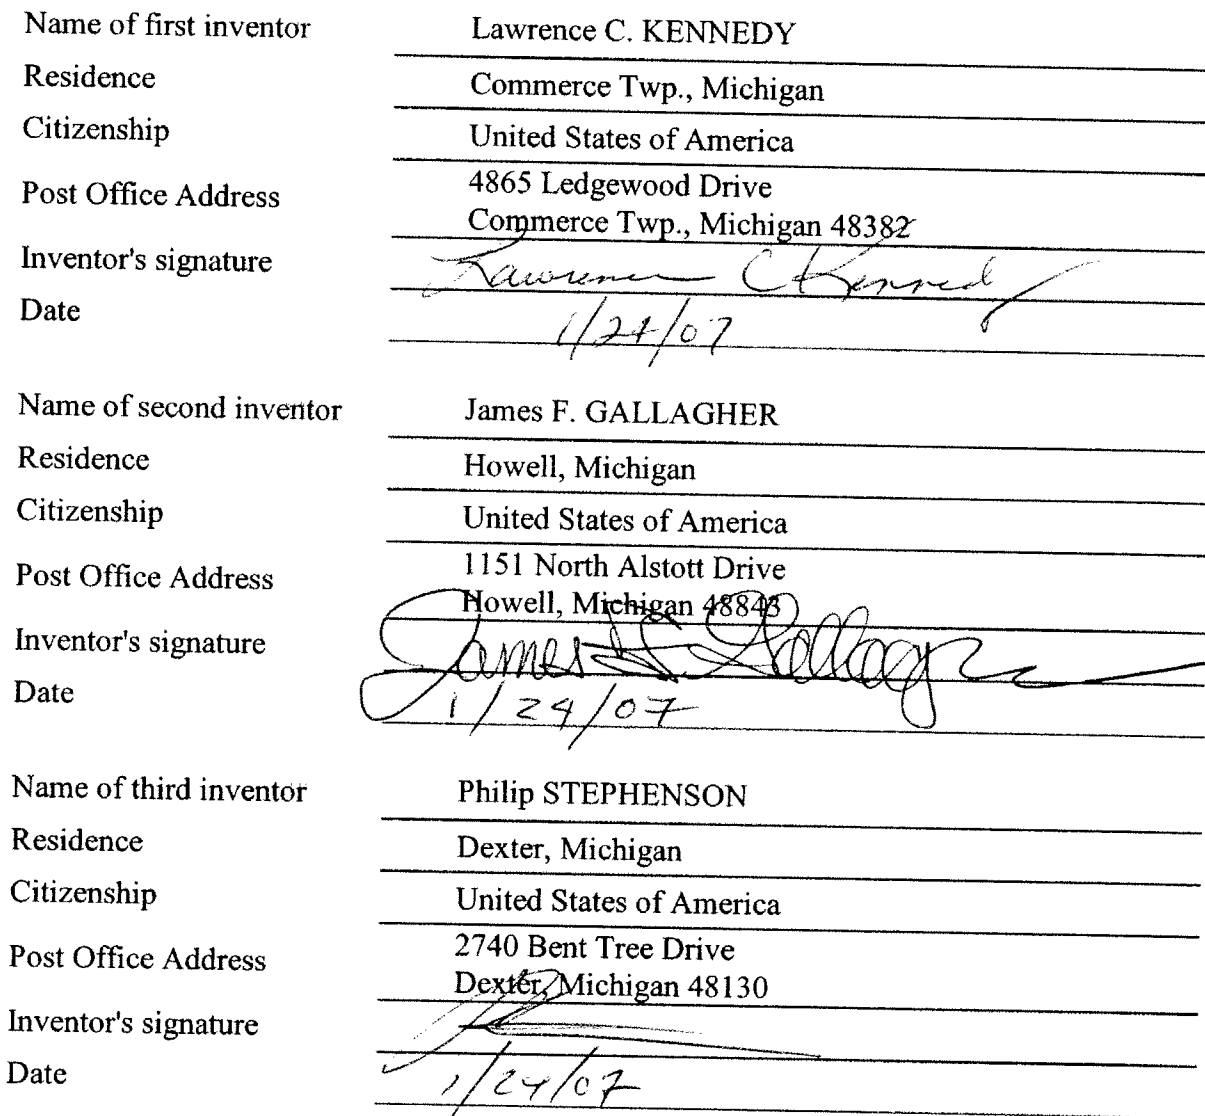 Name of first inventor Lawrence C. KENNEDY
Residence Commerce Twp., Michigan
Citizenship United States of America
Post Office Address 4865 Ledgewood Drive
Commerce Twp., Michigan 48382
Inventor's signature Lawrence C Kennedy
Date 1/24/07
Name of second inventor James F. GALLAGHER
Residence Howell, Michigan
Citizenship United States of America
Post Office Address 1151 North Alstott Drive
Howell, Michigan 48843
Inventor's signature James F. Gallagher
Date 1/24/07
Name of third inventor Philip STEPHENSON
Residence Dexter, Michigan
Citizenship United States of America
Post Office Address 2740 Bent Tree Drive
Dexter, Michigan 48130
Inventor's signature
Date 1/24/07